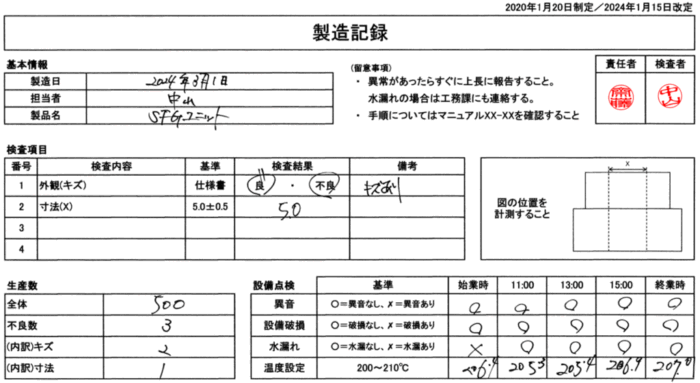 2020年1月20日制定／2024年1月15日改定
製造記録
基本情報
製造日 2024年3月1日
担当者 中山
製品名 SFGユニット
(留意事項)
・ 異常があったらすぐに上長に報告すること。
水漏れの場合は工務課にも連絡する。
・ 手順についてはマニュアルXX-XXを確認すること
責任者 検査者
中山
検査項目
番号 検査内容 基準 検査結果 備考
1 外観(キズ) 仕様書 良 ・ 不良 キズあり
2 寸法(X) 5.0±0.5 5.0
3
4
図の位置を
計測すること
X
生産数
全体 500
不良数 3
(内訳)キズ 2
(内訳)寸法 1
設備点検 基準 始業時 11:00 13:00 15:00 終業時
異音 〇＝異音なし、✗＝異音あり 〇 〇 〇 〇 〇
設備破損 〇＝破損なし、✗＝破損あり 〇 〇 〇 〇 〇
水漏れ 〇＝水漏なし、✗＝水漏あり ✗ 〇 〇 〇 〇
温度設定 200～210℃ 206.4 205.3 205.4 206.9